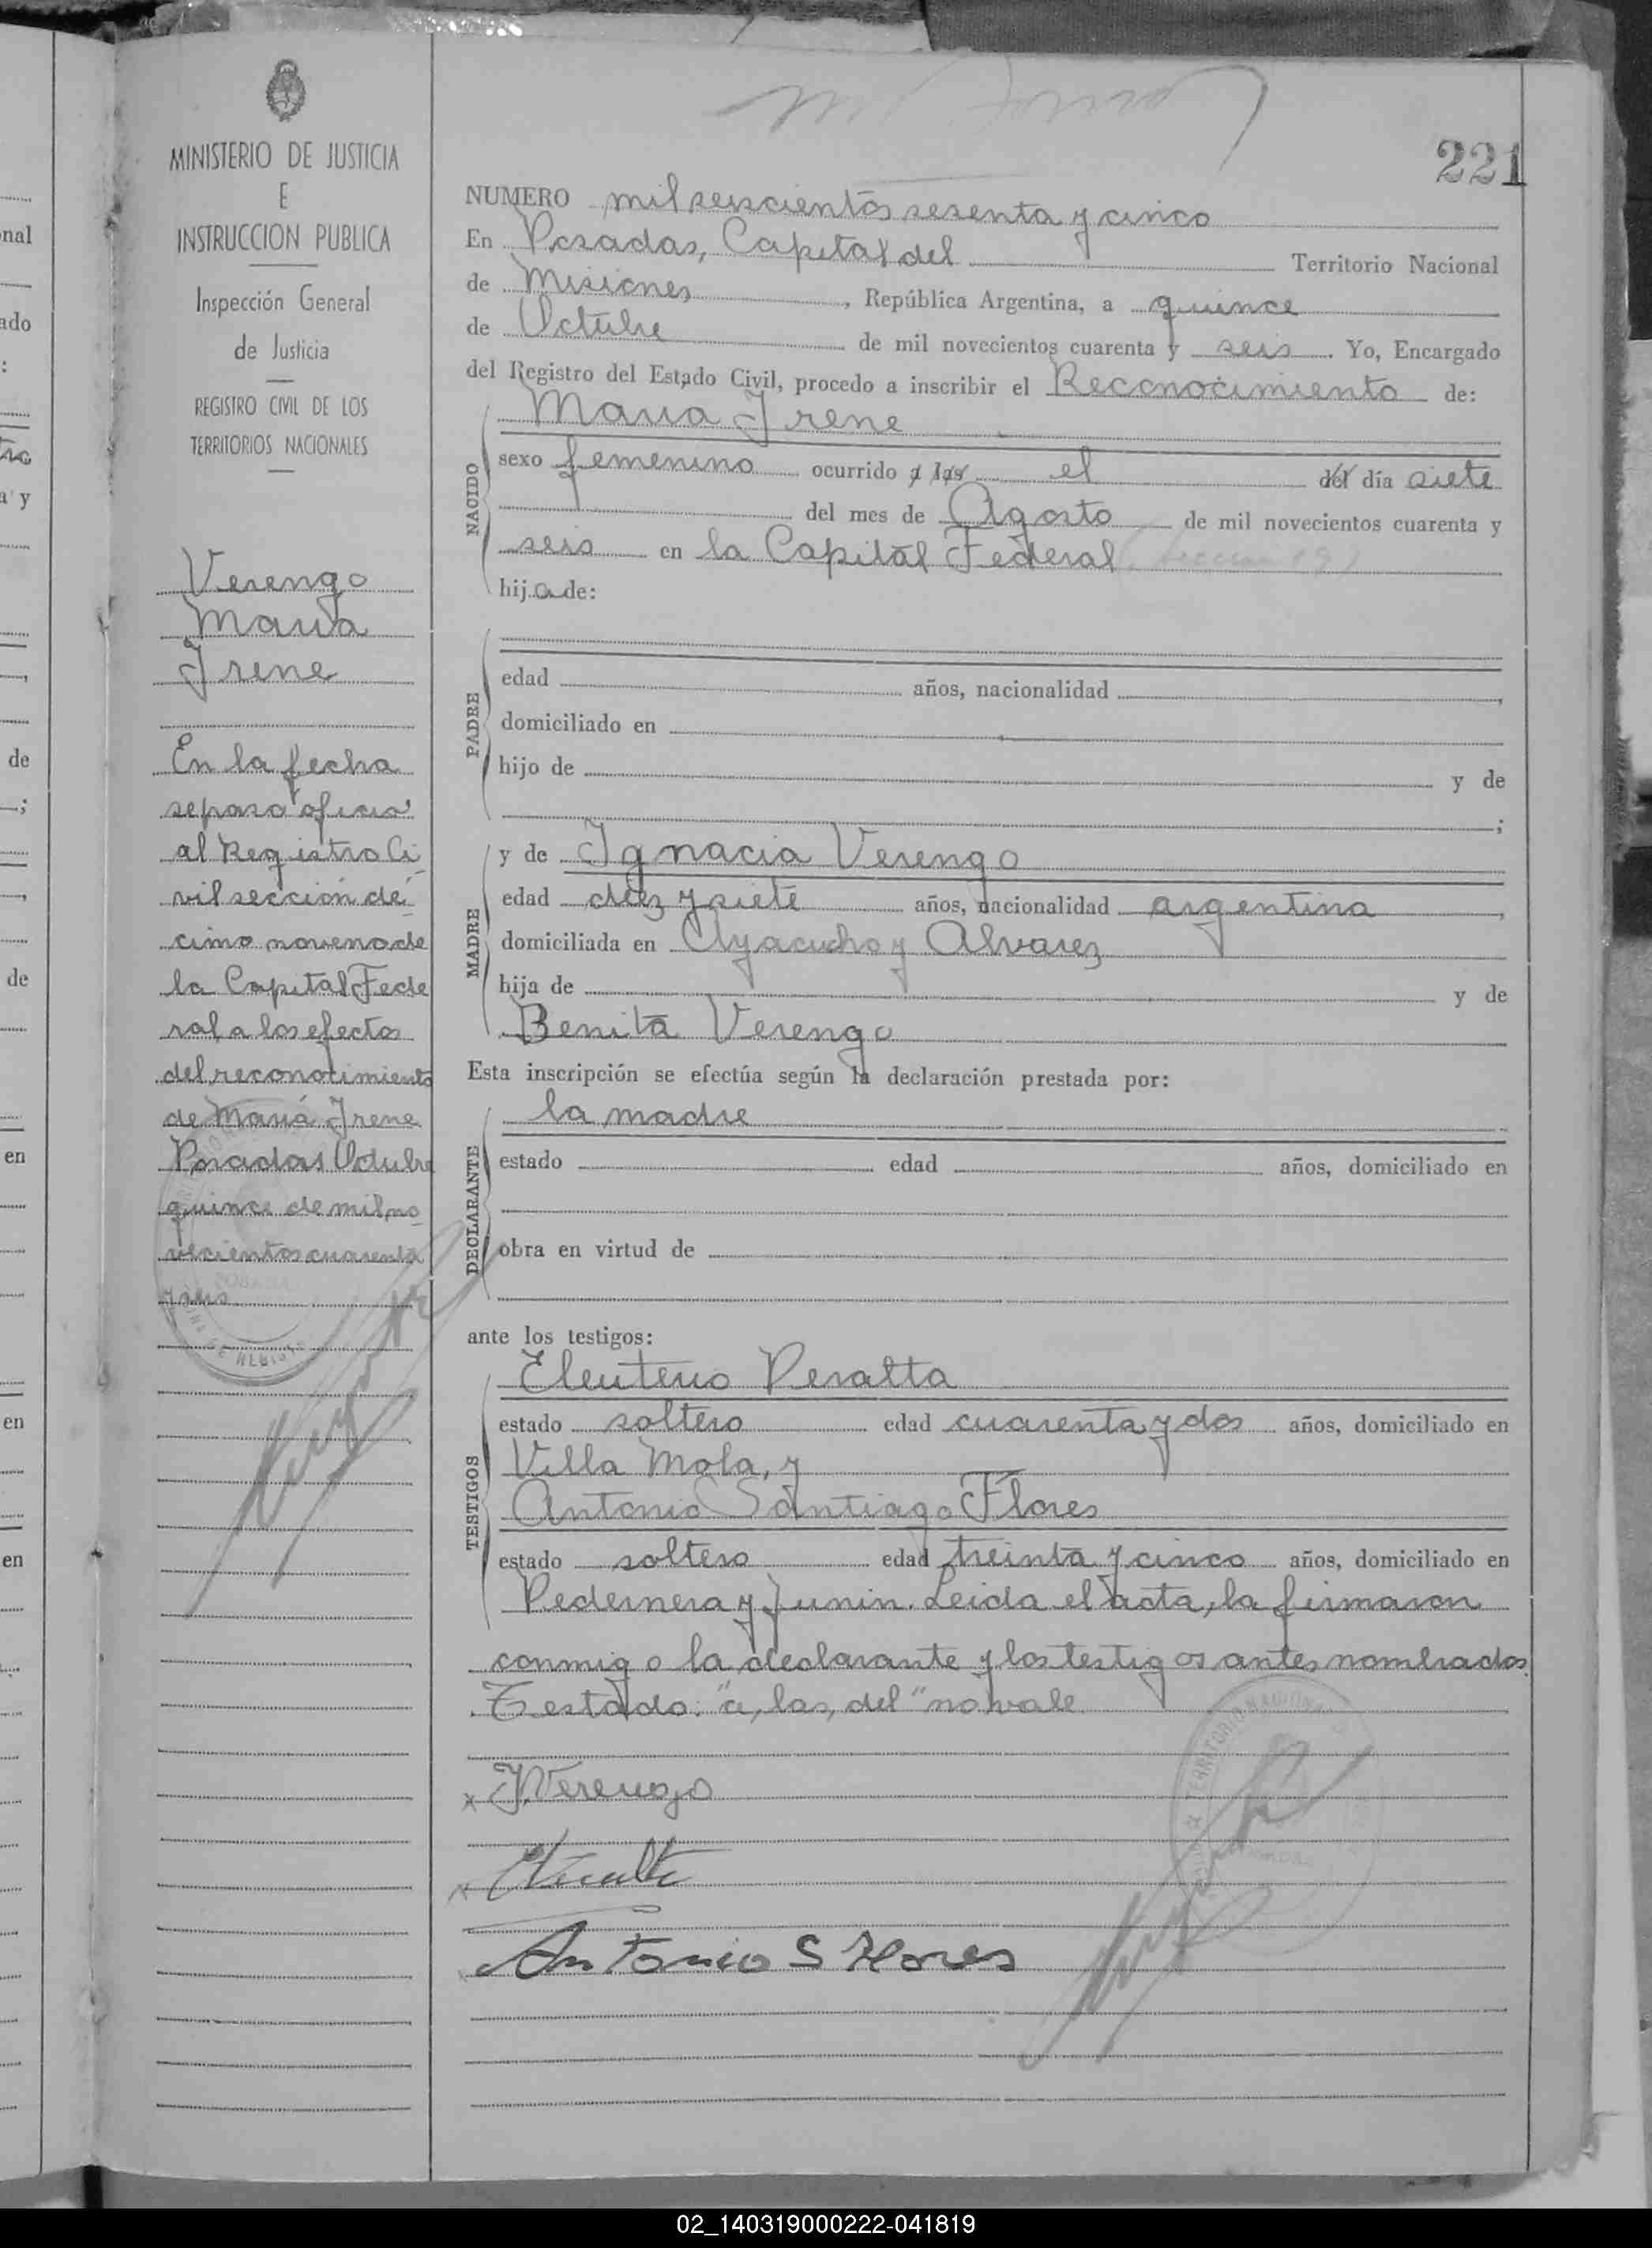 221
MINISTERIO DE JUSTICIA
E
INSTRUCCION PUBLICA
Inspección General
de Justicia
REGISTRO CIVIL DE LOS
TERRITORIOS NACIONALES
Verengo
Maria
Irene
En la fecha
se paso oficio
al Registro Ci
vil sección dé
cimo noveno de
la Capital Fede
ral a los efectos
del reconocimiento
de María Irene
Posadas Octubre
quince de mil no
vecientos cuarenta
y seis
NUMERO mil seiscientos sesenta y cinco
En Posadas, Capital del Territorio Nacional
de Misiones, República Argentina, a quince
de Octubre de mil novecientos cuarenta y seis. Yo, Encargado
del Registro del Estado Civil, procedo a inscribir el Reconocimiento de:
Maria Irene
NACIDO
sexo femenino ocurrido a las el del día siete
del mes de Agosto de mil novecientos cuarenta y
seis en la Capital Federal
hija de:
PADRE
edad años, nacionalidad
domiciliado en
hijo de y de
;
MADRE
y de Ignacia Verengo
edad diez y siete años, nacionalidad argentina,
domiciliada en Ayacucho y Alvarez
hija de y de
Benita Verengo
Esta inscripción se efectúa según la declaración prestada por:
DECLARANTE
la madre
estado edad años, domiciliado en
obra en virtud de
ante los testigos:
TESTIGOS
Eleuterio Peralta
estado soltero edad cuarenta y dos años, domiciliado en
Villa Mola, y
Antonio Santiago Flores
estado soltero edad treinta y cinco años, domiciliado en
Pedernera y Junin. Leida el acta, la firmaron
conmigo la declarante y los testigos antes nombrados.
Testado: "a, las, del" no vale
x I. Verengo
Antonio S Flores
02_140319000222-041819